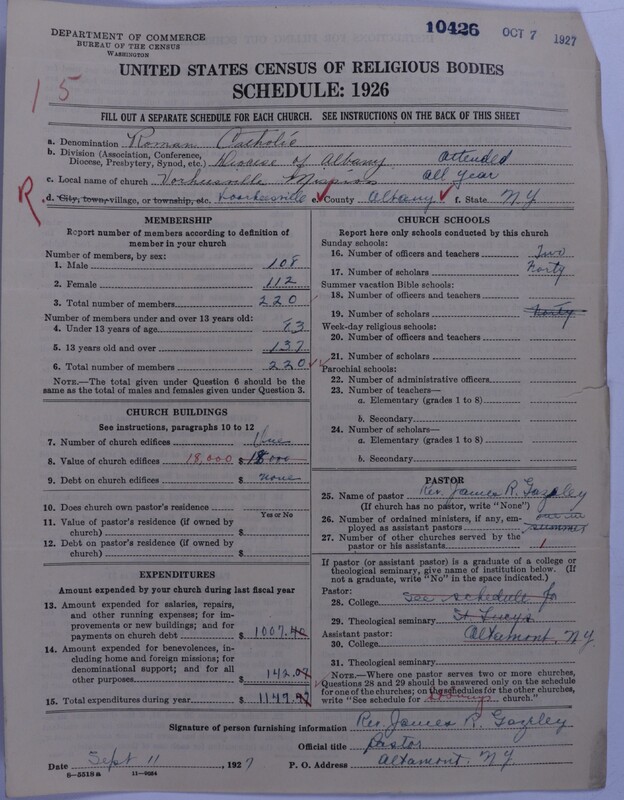 10426 OCT 7 1927
DEPARTMENT OF COMMERCE
BUREAU OF THE CENSUS
WASHINGTON
UNITED STATES CENSUS OF RELIGIOUS BODIES
SCHEDULE: 1926
15
FILL OUT A SEPARATE SCHEDULE FOR EACH CHURCH. SEE INSTRUCTIONS ON THE BACK OF THIS SHEET
a. Denomination Roman Catholic
b. Division (Association, Conference, Diocese, Presbytery, Synod, etc.) Diocese of Albany attended
c. Local name of church Vorheesville Mission all year
R. d. City, town, village, or township, etc. Voorheesville e. County Albany f. State N.Y.
MEMBERSHIP
Report number of members according to definition of
member in your church
Number of members, by sex:
1. Male 108
2. Female 112
3. Total number of members 220
Number of members under and over 13 years old:
4. Under 13 years of age 83
5. 13 years old and over 137
6. Total number of members 220
NOTE.—The total given under Question 6 should be
same as the total of males and females given under Question 3.
CHURCH BUILDINGS
See instructions, paragraphs 10 to 12
7. Number of church edifices One
8. Value of church edifices 18,000 $ 18000
9. Debt on church edifices $ none
10. Does church own pastor's residence
Yes or No
11. Value of pastor's residence (if owned by
church) $
12. Debt on pastor's residence (if owned by
church) $
EXPENDITURES
Amount expended by your church during last fiscal year
13. Amount expended for salaries, repairs,
and other running expenses; for im-
provements or new buildings; and for
payments on church debt $ 1007.
14. Amount expended for benevolences,
including home and foreign missions; for
denominational support; and for all
other purposes $ 142.
15. Total expenditures during year $ 1149.
CHURCH SCHOOLS
Report here only schools conducted by this church
Sunday schools:
16. Number of officers and teachers Two
17. Number of scholars forty
Summer vacation Bible schools:
18. Number of officers and teachers
19. Number of scholars forty
Week-day religious schools:
20. Number of officers and teachers
21. Number of scholars
Parochial schools:
22. Number of administrative officers
23. Number of teachers—
a. Elementary (grades 1 to 8)
b. Secondary
24. Number of scholars—
a. Elementary (grades 1 to 8)
b. Secondary
PASTOR
25. Name of pastor Rev. James R. Gazeley
(If church has no pastor, write "None")
26. Number of ordained ministers, if any, em-
ployed as assistant pastors summer
27. Number of other churches served by the
pastor or his assistants 1
If pastor (or assistant pastor) is a graduate of a college or
theological seminary, give name of institution below. (If
not a graduate, write "No" in the space indicated.)
Pastor:
28. College See schedule for
29. Theological seminary St Lucy's
Assistant pastor: Altamont, N.Y.
30. College
31. Theological seminary
NOTE.—Where one pastor serves two or more churches,
Questions 28 and 29 should be answered only on the schedule
for one of the churches; on the schedules for the other churches,
write "See schedule for church."
Signature of person furnishing information Rev James R. Gazeley
Official title Pastor
Date Sept 11, 1927 P. O. Address Altamont, N.Y
6—5518a 11—9084